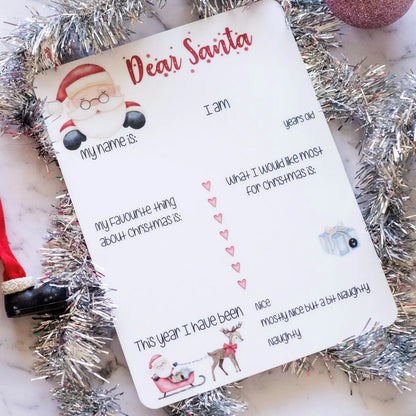 Dear Santa
I am
years old
My name is:
What I would like most
for Christmas is:
My favourite thing
about Christmas is:
This year I have been
Nice
Mostly Nice but a bit Naughty
Naughty